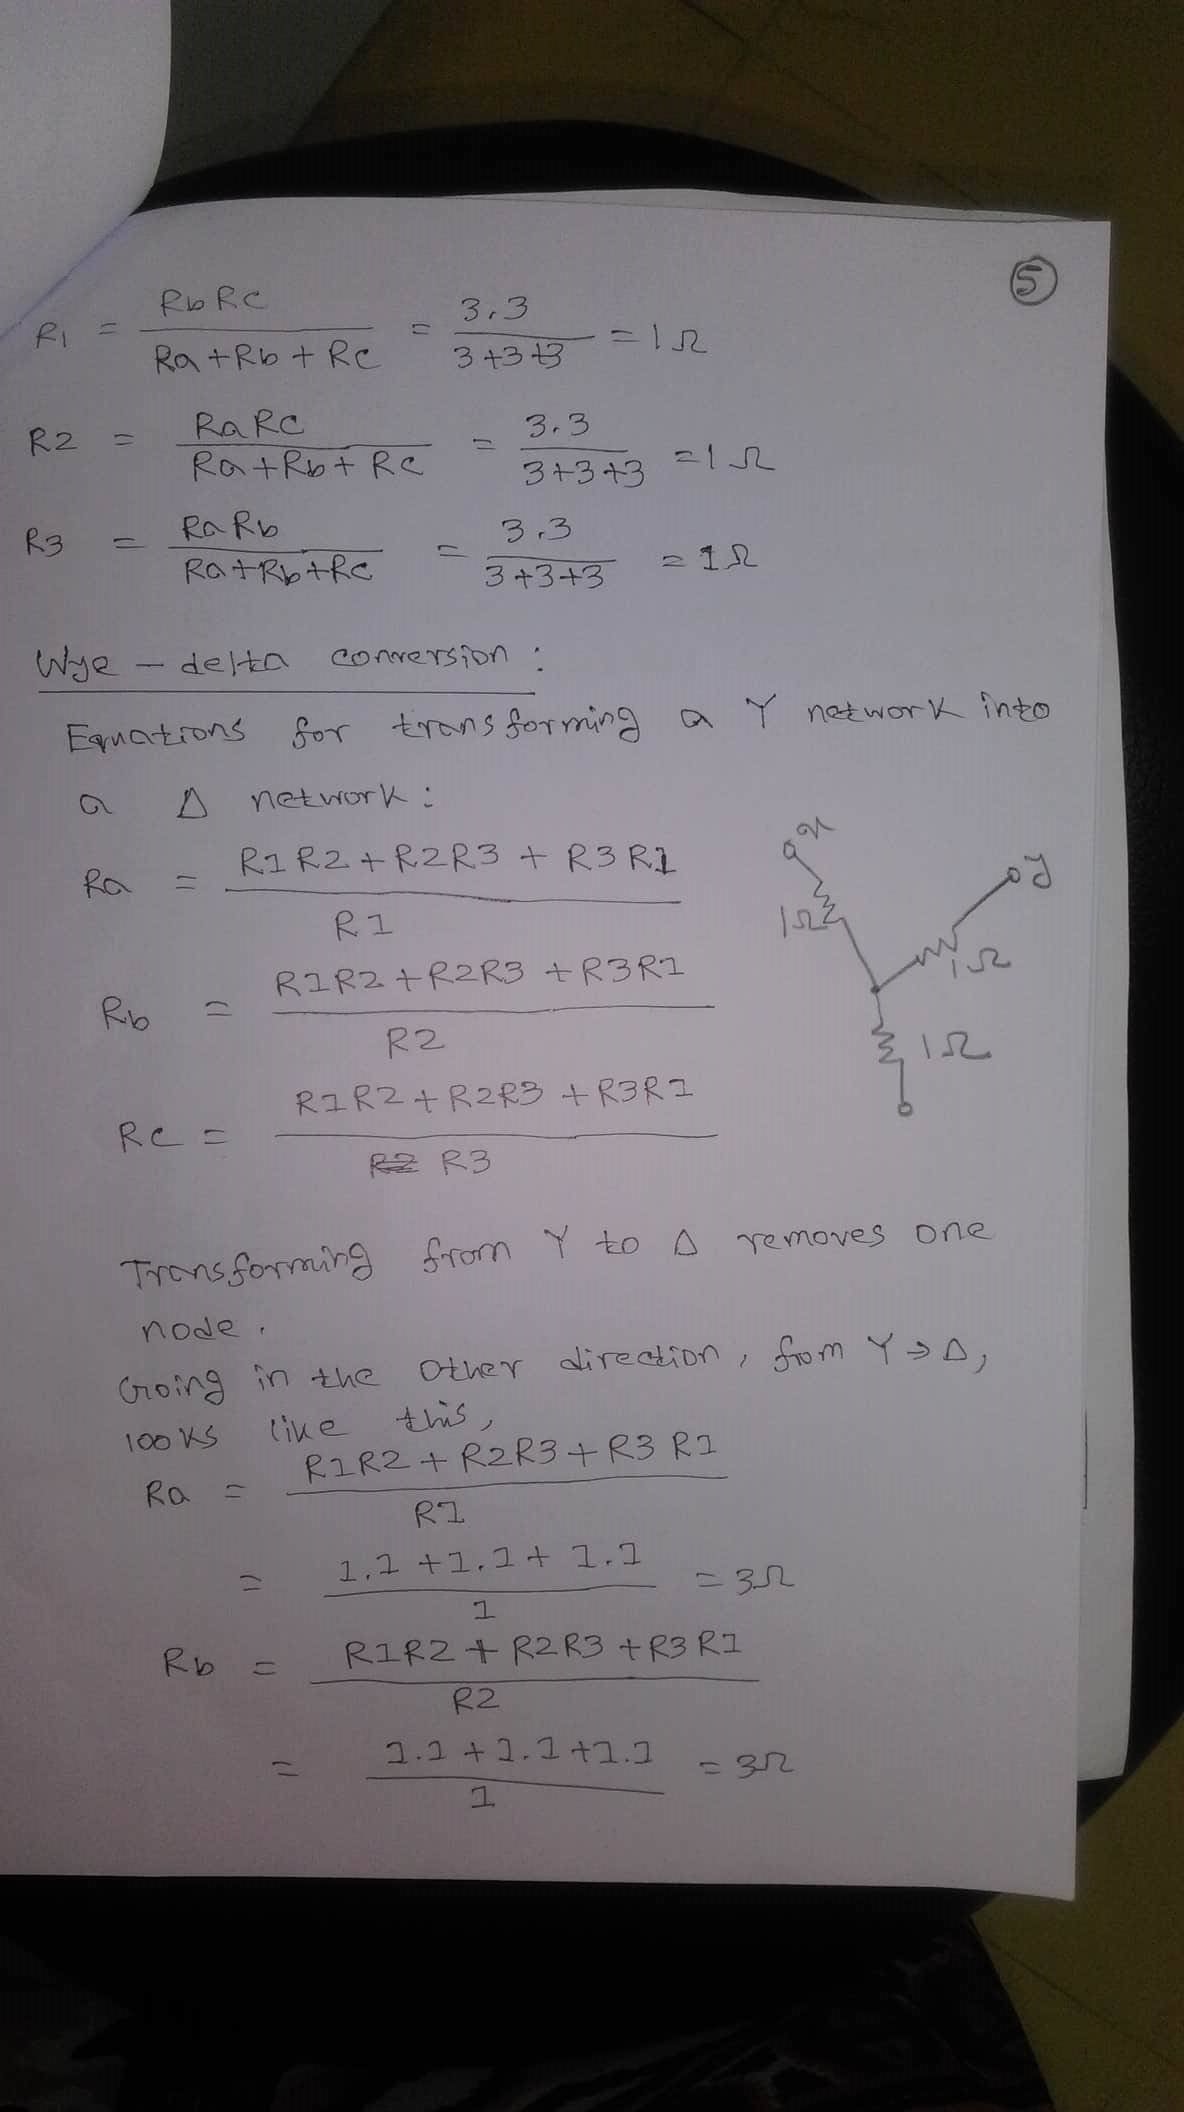 5
R1 = RbRc / Ra+Rb+Rc = 3.3 / 3+3+3 = 1Ω
R2 = RaRc / Ra+Rb+Rc = 3.3 / 3+3+3 = 1Ω
R3 = RaRb / Ra+Rb+Rc = 3.3 / 3+3+3 = 1Ω
Wye - delta conversion :
Equations for transforming a Y network into
a Δ network :
Ra = R1R2 + R2R3 + R3R1 / R1
Rb = R1R2 + R2R3 + R3R1 / R2
Rc = R1R2 + R2R3 + R3R1 / R3
x
y
1Ω
1Ω
1Ω
Transforming from Y to Δ removes one
node.
Going in the other direction, from Y → Δ,
looks like this,
Ra = R1R2 + R2R3 + R3R1 / R1
= 1.1 + 1.1 + 1.1 / 1 = 3Ω
Rb = R1R2 + R2R3 + R3R1 / R2
= 1.1 + 1.1 + 1.1 / 1 = 3Ω